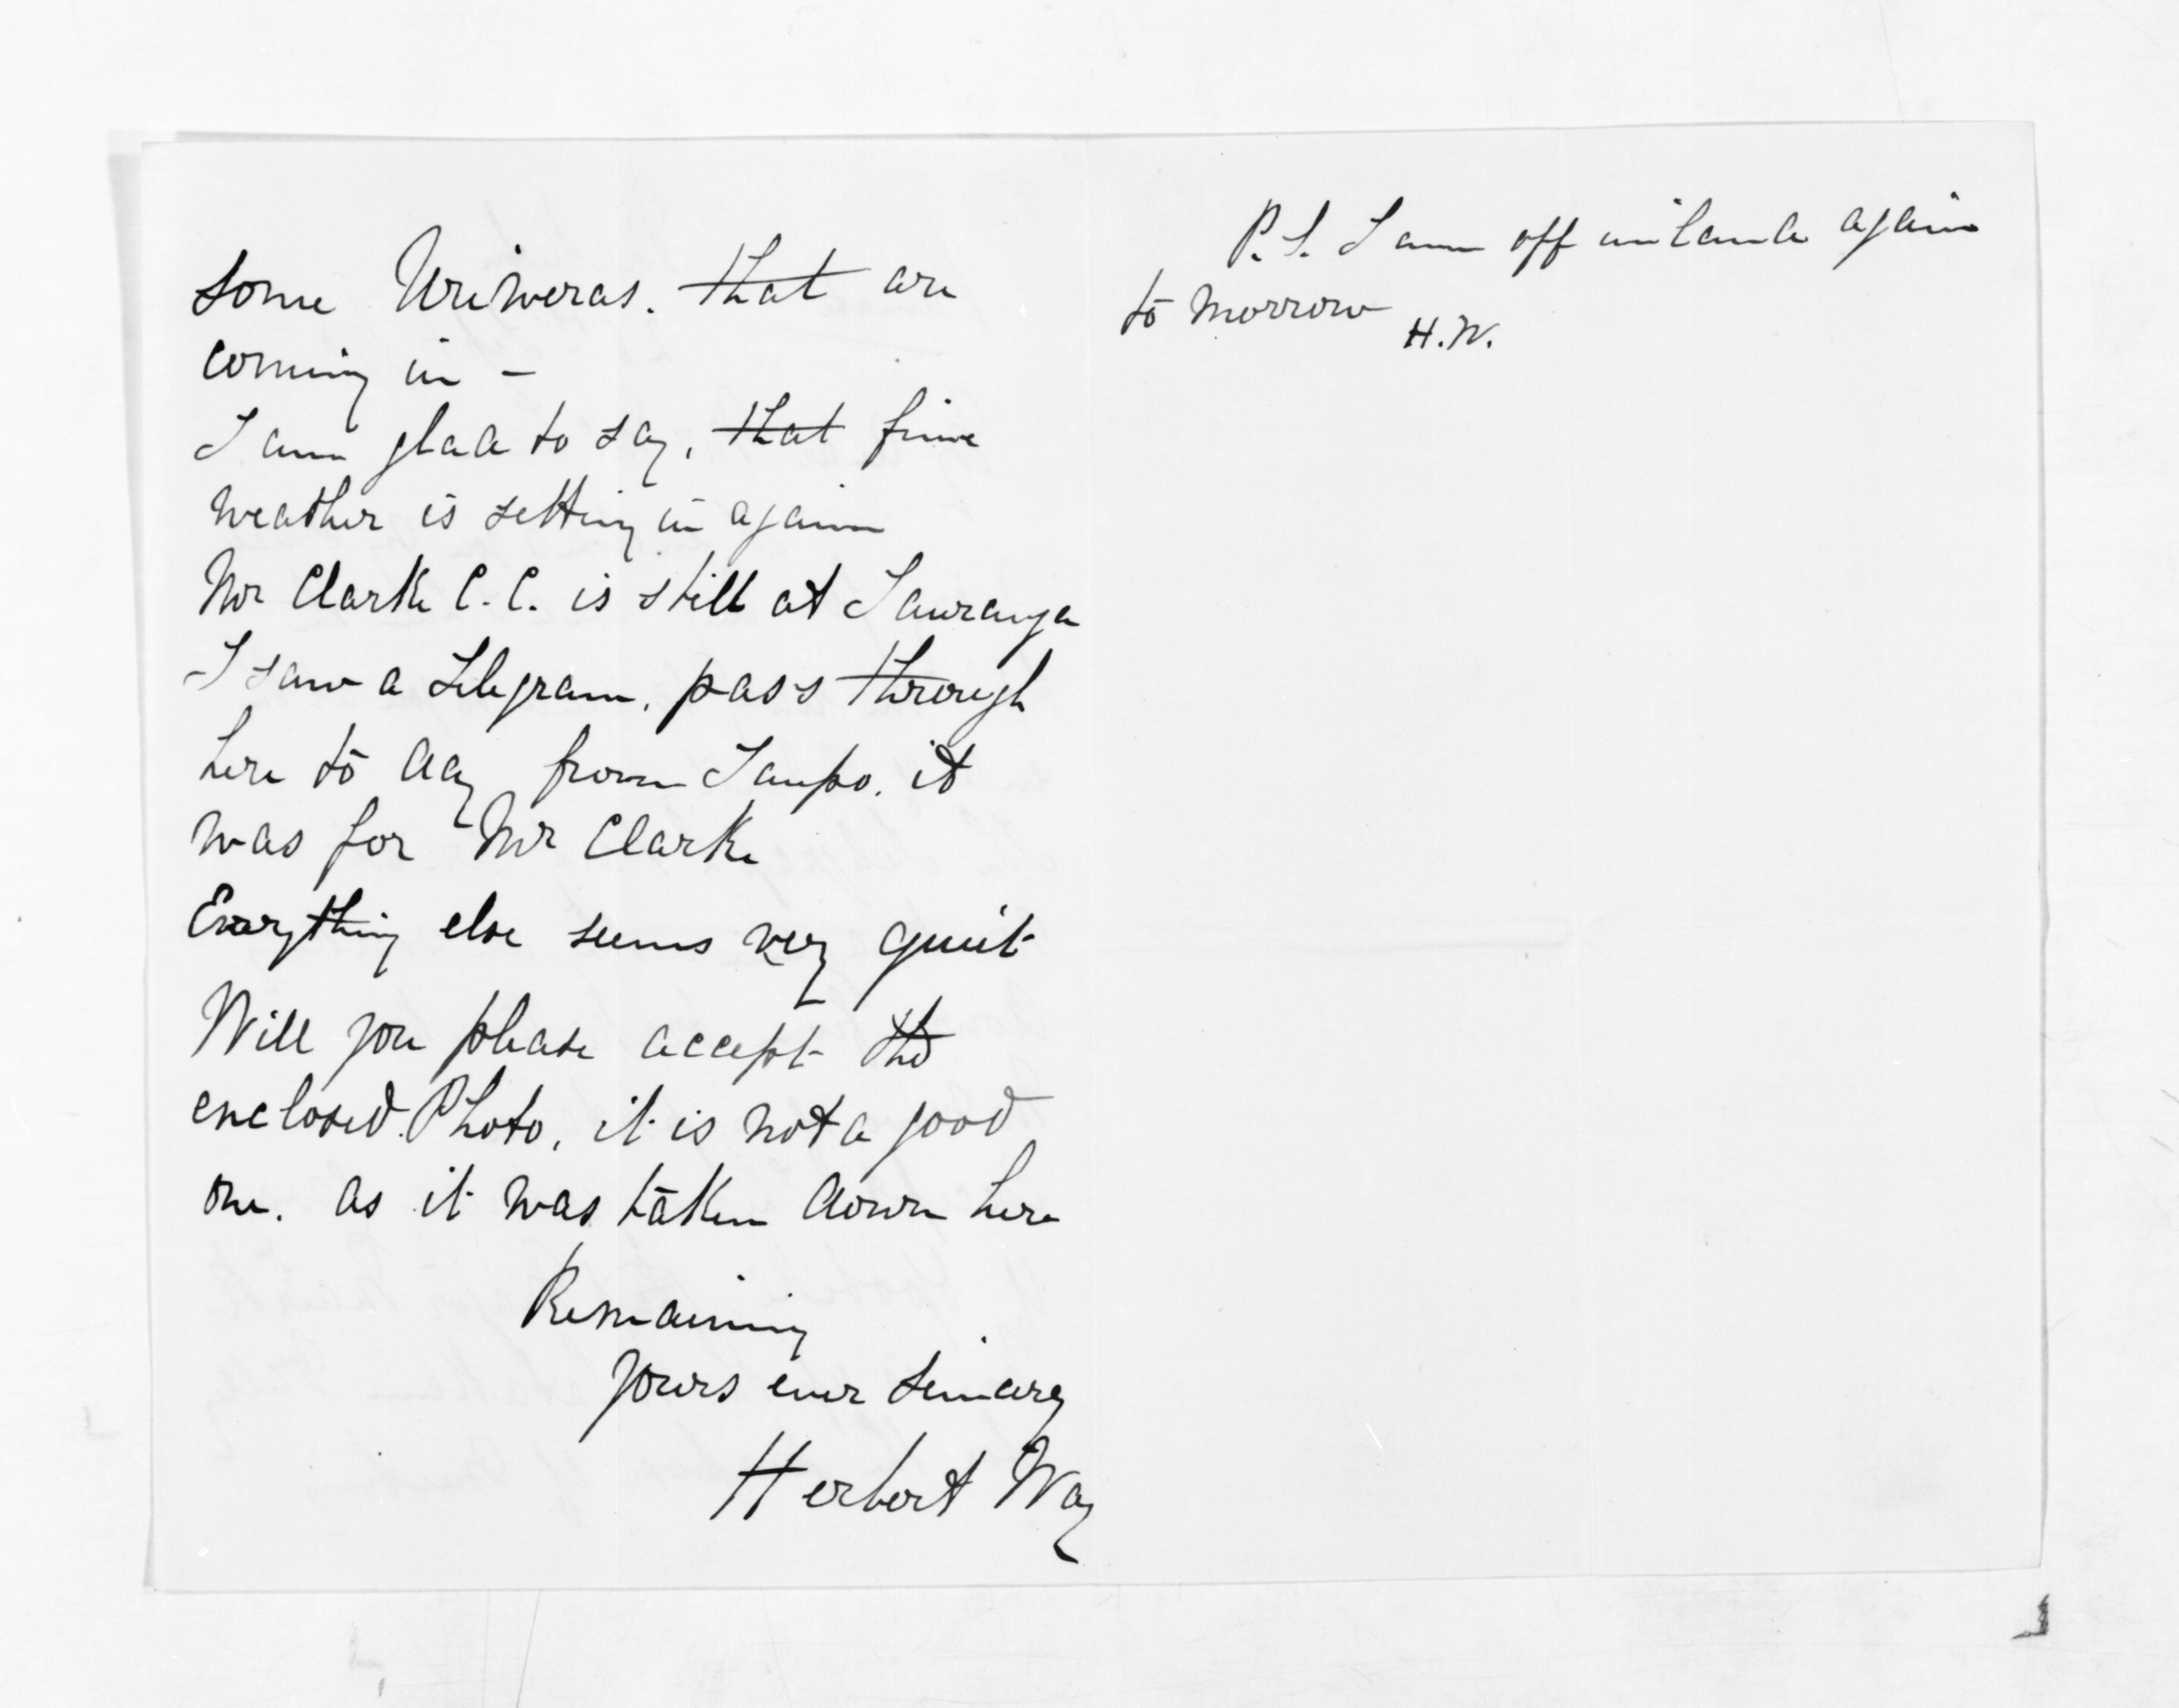 some Uriweras. that are
coming in -
I am glad to say, that fine
weather is setting in again
Mr Clarke C.C. is still at Tauranga
I saw a telegram, pass through
here to day from Taupo. it
was for Mr Clarke
Everything else seems very quiet
Will you please accept the
enclosed Photo, it is not a good
one. as it was taken down here
Remaining
yours ever sincerely
Herbert Way
P.S. I am off inland again
to morrow
H.W.